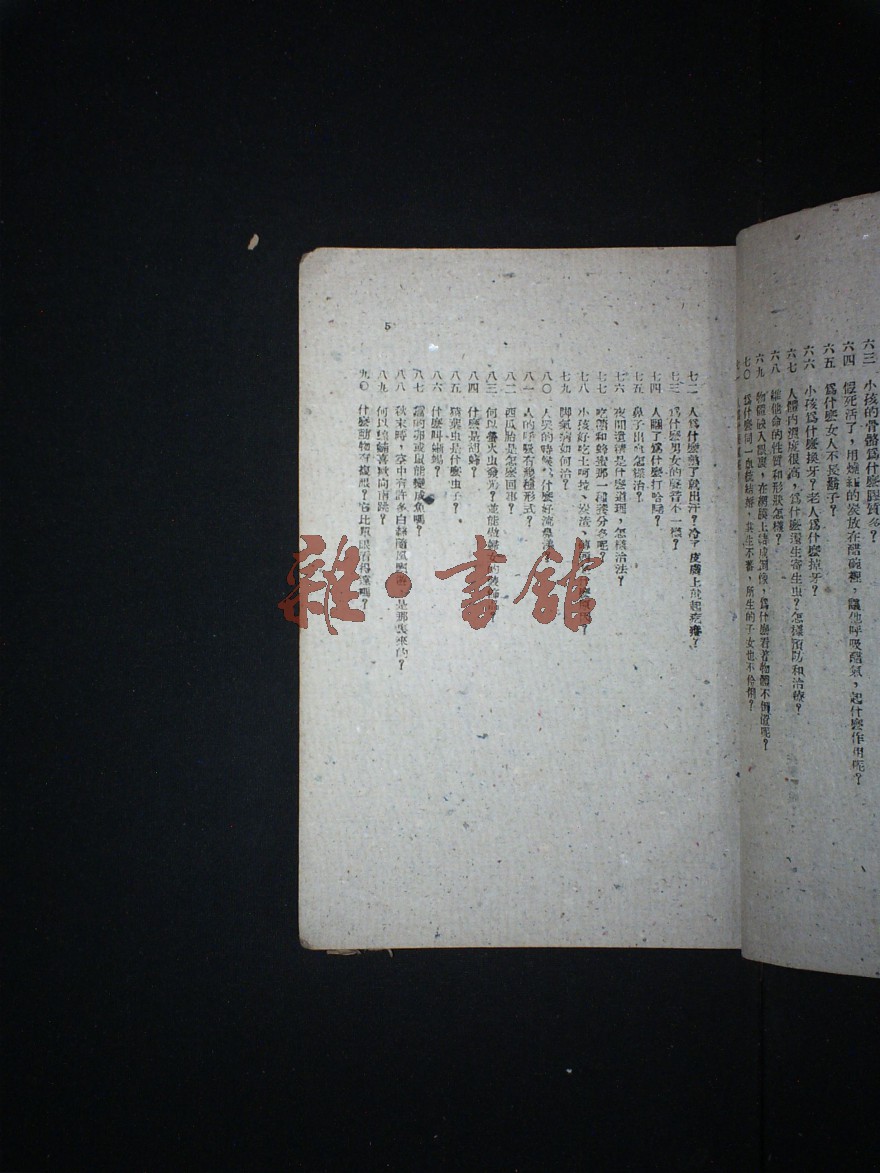 六三 小孩的骨骼爲什麼膠質多？
六四 假死活了，用燒紅的炭放在醋碗裡，讓他呼吸醋氣，起什麽作用呢？
六五 爲什麽女人不長鬍子？
六六 小孩爲什麽換牙？老人爲什麽掉牙？
六七 人體內溫度很高，爲什麽還生寄生虫？怎樣預防和治療？
六八 維他命的性質和形狀怎樣？
六九 物體映入眼裏，在網膜上倒成像，爲什麽看著物體不倒置呢？
七〇 爲什麽同一血統結婚，其生不蕃，所生的子女也不伶俐？
七二 人爲什麽熱了就出汗？冷了皮膚上就起疙瘩？
七三 爲什麽男女的聲音不一樣？
七四 人睏了爲什麽打哈欠？
七五 鼻子出血怎樣治？
七六 夜間遺精是什麽道理，怎樣治法？
七七 吃糖和蜂蜜那一種養分多呢？
七八 小孩好吃土坷垃、炭渣、
七九 脚氣病如何治？
八〇 人哭的時候爲什麽好流鼻涕？
八一 人的呼吸有幾種形式？
八二 西瓜胎是怎麽回事？
八三 何以螢火虫發光？並能做婦女的裝飾品？
八四 什麽是胡蜂？
八五 虫是什麽虫子？
八六 什麽叫蜥蜴？
八七 的卵或鼠能變成魚嗎？
八八 秋末時，空中有許多白絲隨風飄 是那裏來的？
八九 何以 喜歡向南跳？
九〇 什麽動物有複眼？它比單眼看得遠嗎？
5
雜·書館